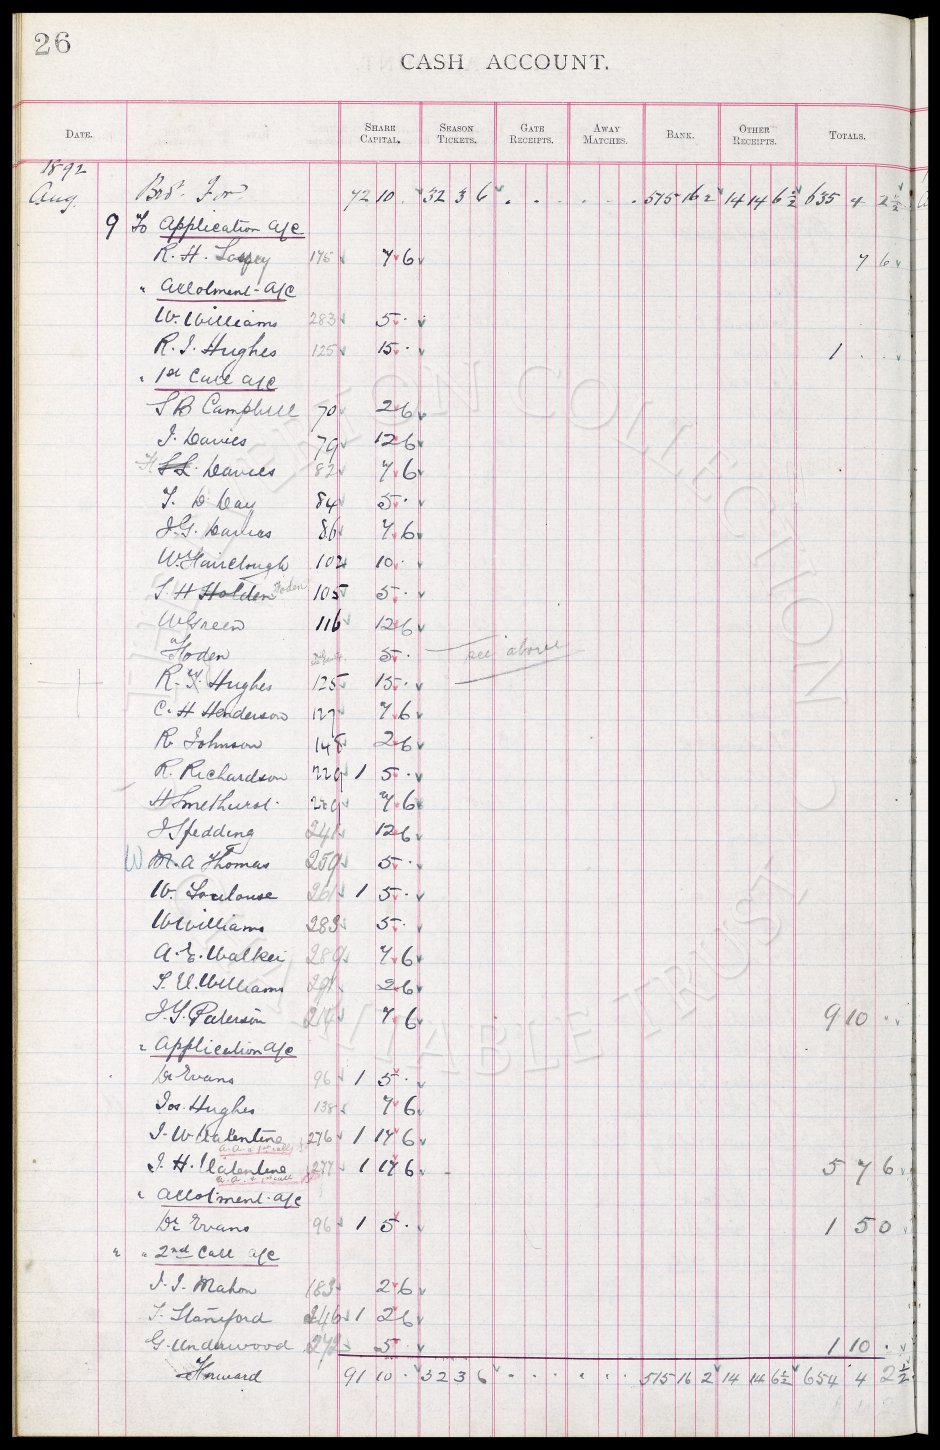 26
CASH ACCOUNT.
DATE. SHARE CAPITAL. SEASON TICKETS. GATE RECEIPTS. AWAY MATCHES. BANK. OTHER RECEIPTS. TOTALS.
1892
Aug. Brot. For 72 10 . 32 3 6 . . . . . . 515 16 2 14 14 6½ 635 4 2½
9 To Application a/c
R. H. 175 7 6 7 6
" Allotment a/c
W. Williams 283 5 .
R. J. Hughes 125 15 . 1 . .
" 1st Call a/c
S B Campbell 70 2 6
J. Davies 79 12 6
H S L Davies 82 7 6
T. D. Day 84 5 .
J. G. Davies 86 7 6
W. Fairclough 102 10 .
S H Holden Foden 105 5 .
W Green 116 12 6
Foden 5 . see above
R. J. Hughes 125 15 .
C. H Henderson 127 7 6
R. Johnson 148 2 6
R. Richardson 229 1 5 .
H Smethurst 7 6
J Spedding 241 12 6
W M. A Thomas 259 5 .
W. Toulouse 261 1 5 .
W Williams 283 5 .
A. E. Walker 289 7 6
T. U. Williams 291 2 6
J. G. Paterson 214 7 6 9 10 .
" Application a/c
Dr Evans 96 1 5 .
Jos. Hughes 138 7 6
J. W Valentine 276 1 17 6
a.a. & 1st call
J. H. Valentine 277 1 17 6 5 7 6
a.a. & 1st call
" Allotment a/c
Dr Evans 96 1 5 . 1 5 0
" " 2nd Call a/c
J. J. Mahon 183 2 6
T. Staniford 246 1 2 6
G. Underwood 272 5 . 1 10 .
Forward 91 10 . 32 3 6 . . . . . . 515 16 2 14 14 6½ 654 4 2½
THE EVERTON COLLECTION
CHARITABLE TRUST